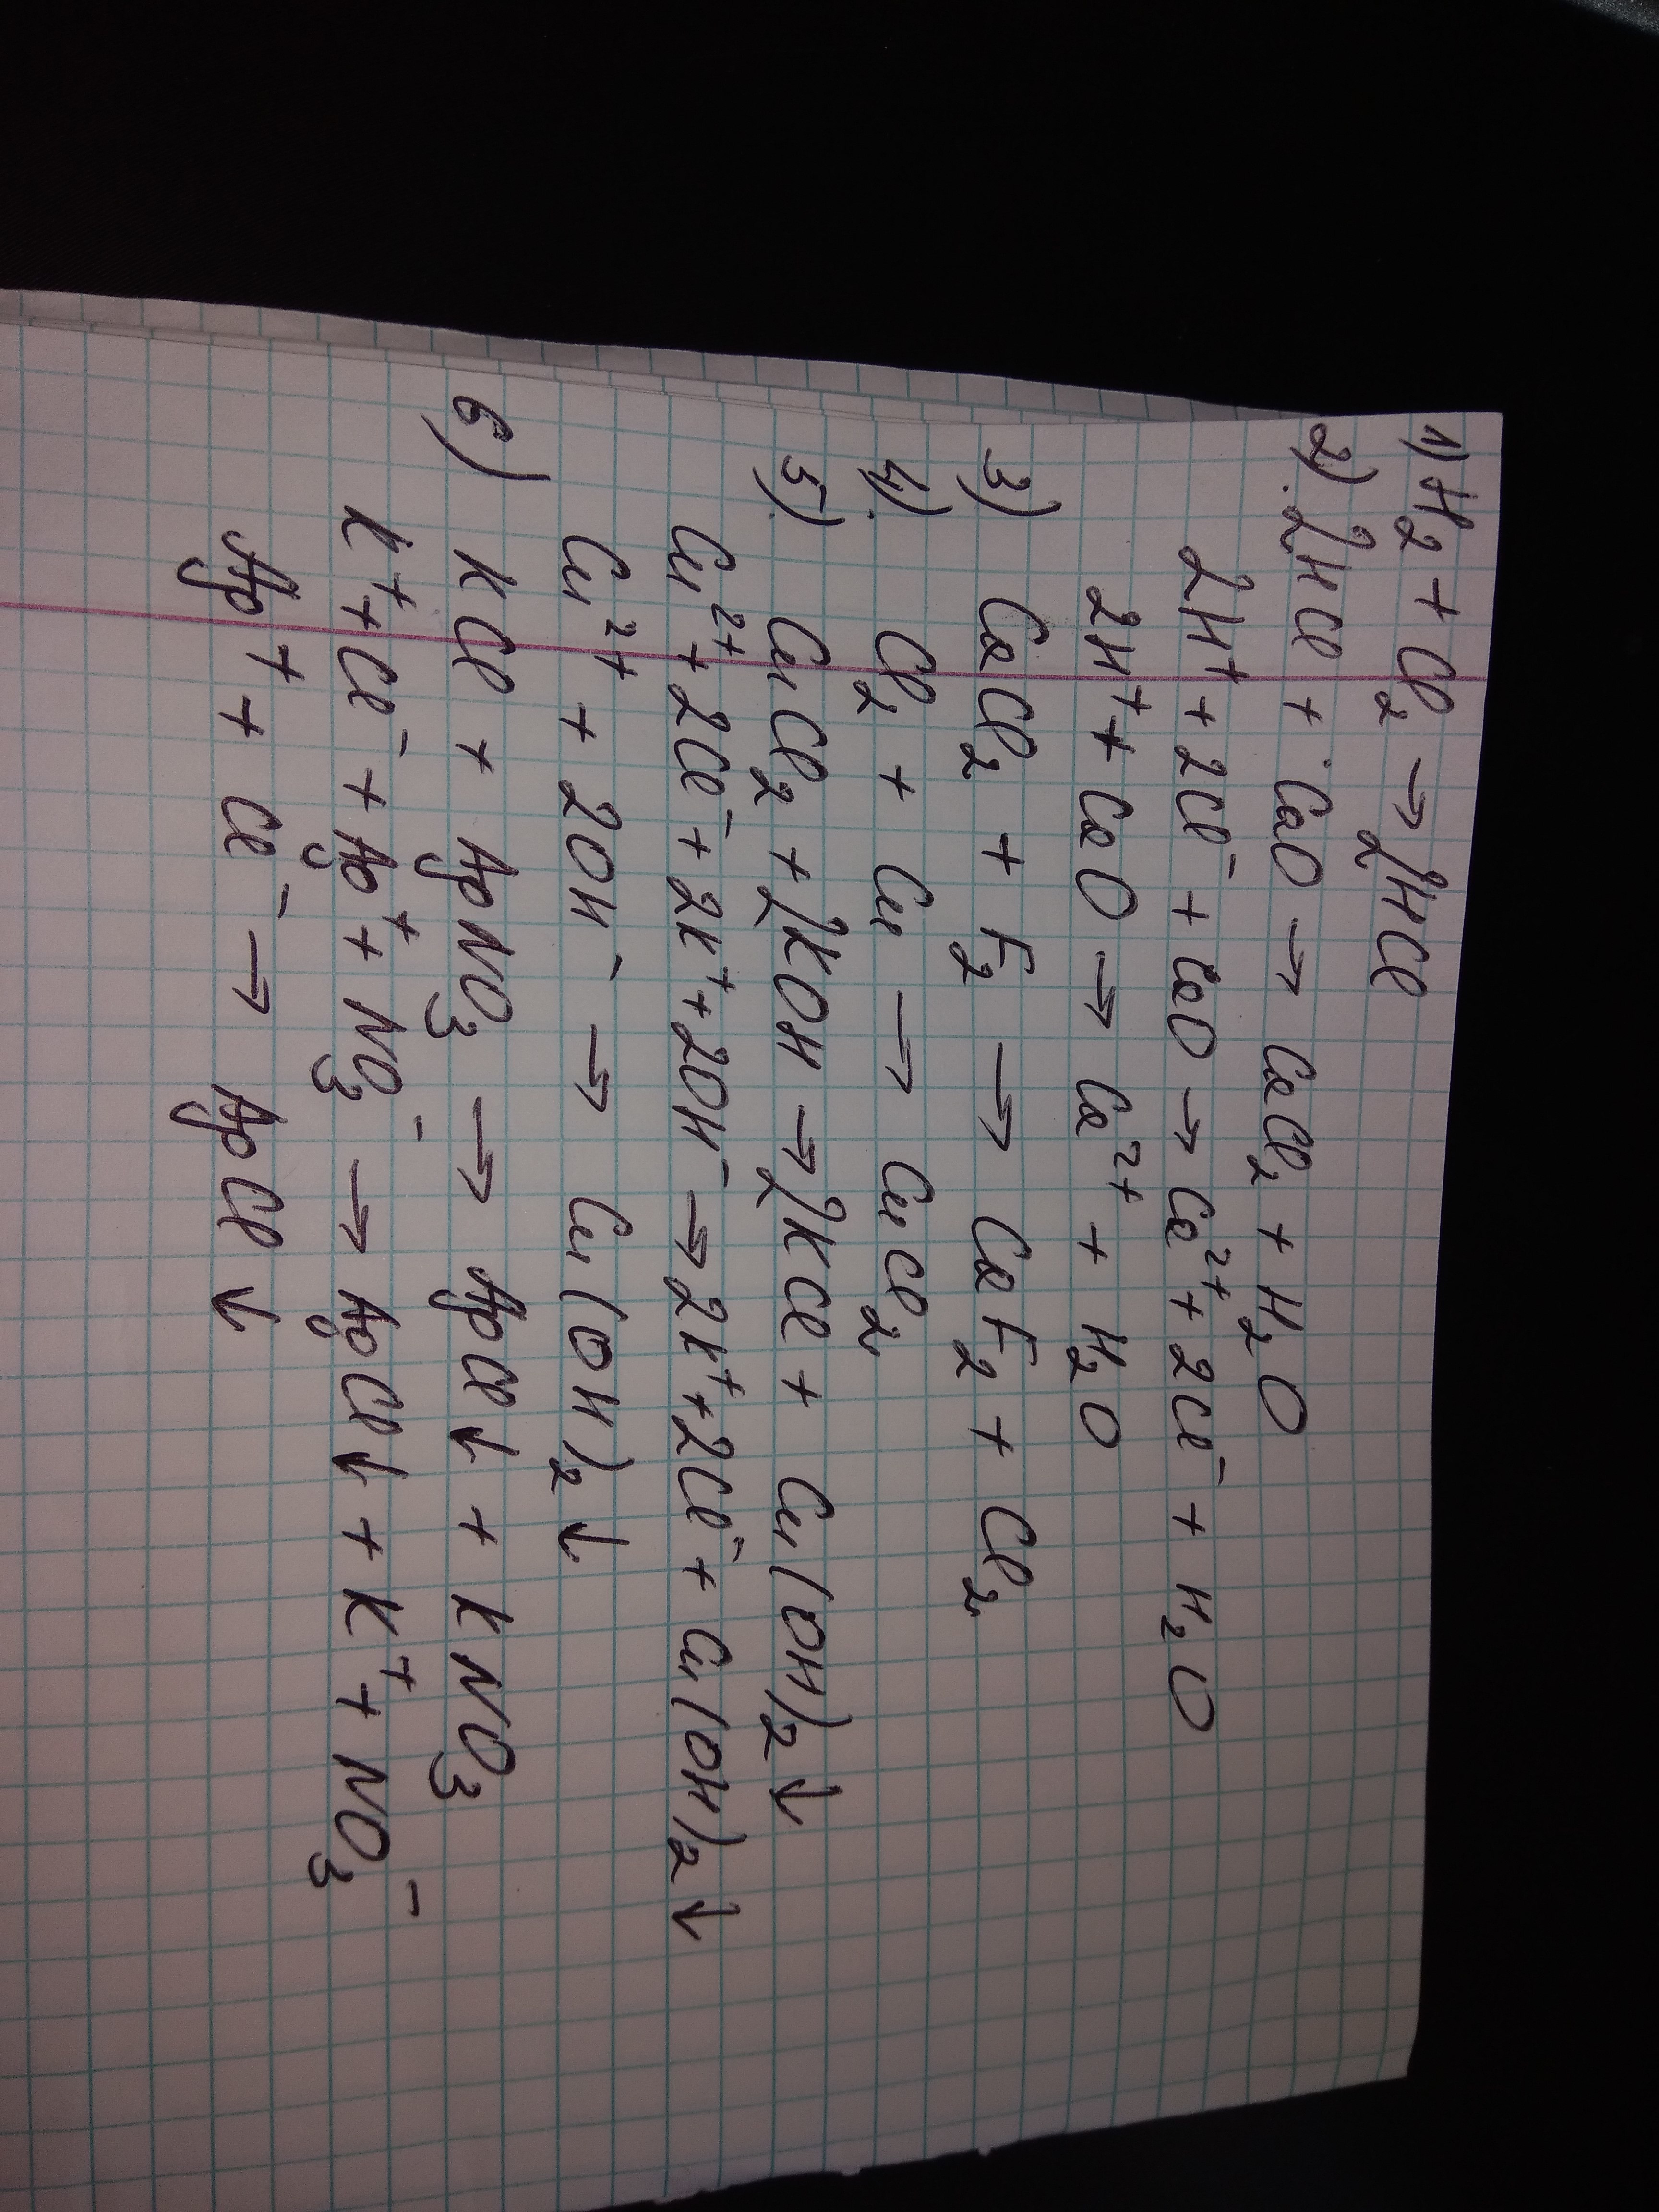 1) H₂ + Cl₂ → 2HCl
2) 2HCl + CaO → CaCl₂ + H₂O
2H⁺ + 2Cl⁻ + CaO → Ca²⁺ + 2Cl⁻ + H₂O
2H⁺ + CaO → Ca²⁺ + H₂O
3) CaCl₂ + F₂ → CaF₂ + Cl₂
4) Cl₂ + Cu → CuCl₂
5) CuCl₂ + 2KOH → 2KCl + Cu(OH)₂↓
Cu²⁺ + 2Cl⁻ + 2K⁺ + 2OH⁻ → 2K⁺ + 2Cl⁻ + Cu(OH)₂↓
Cu²⁺ + 2OH⁻ → Cu(OH)₂↓
6) KCl + AgNO₃ → AgCl↓ + KNO₃
K⁺ + Cl⁻ + Ag⁺ + NO₃⁻ → AgCl↓ + K⁺ + NO₃⁻
Ag⁺ + Cl⁻ → AgCl↓